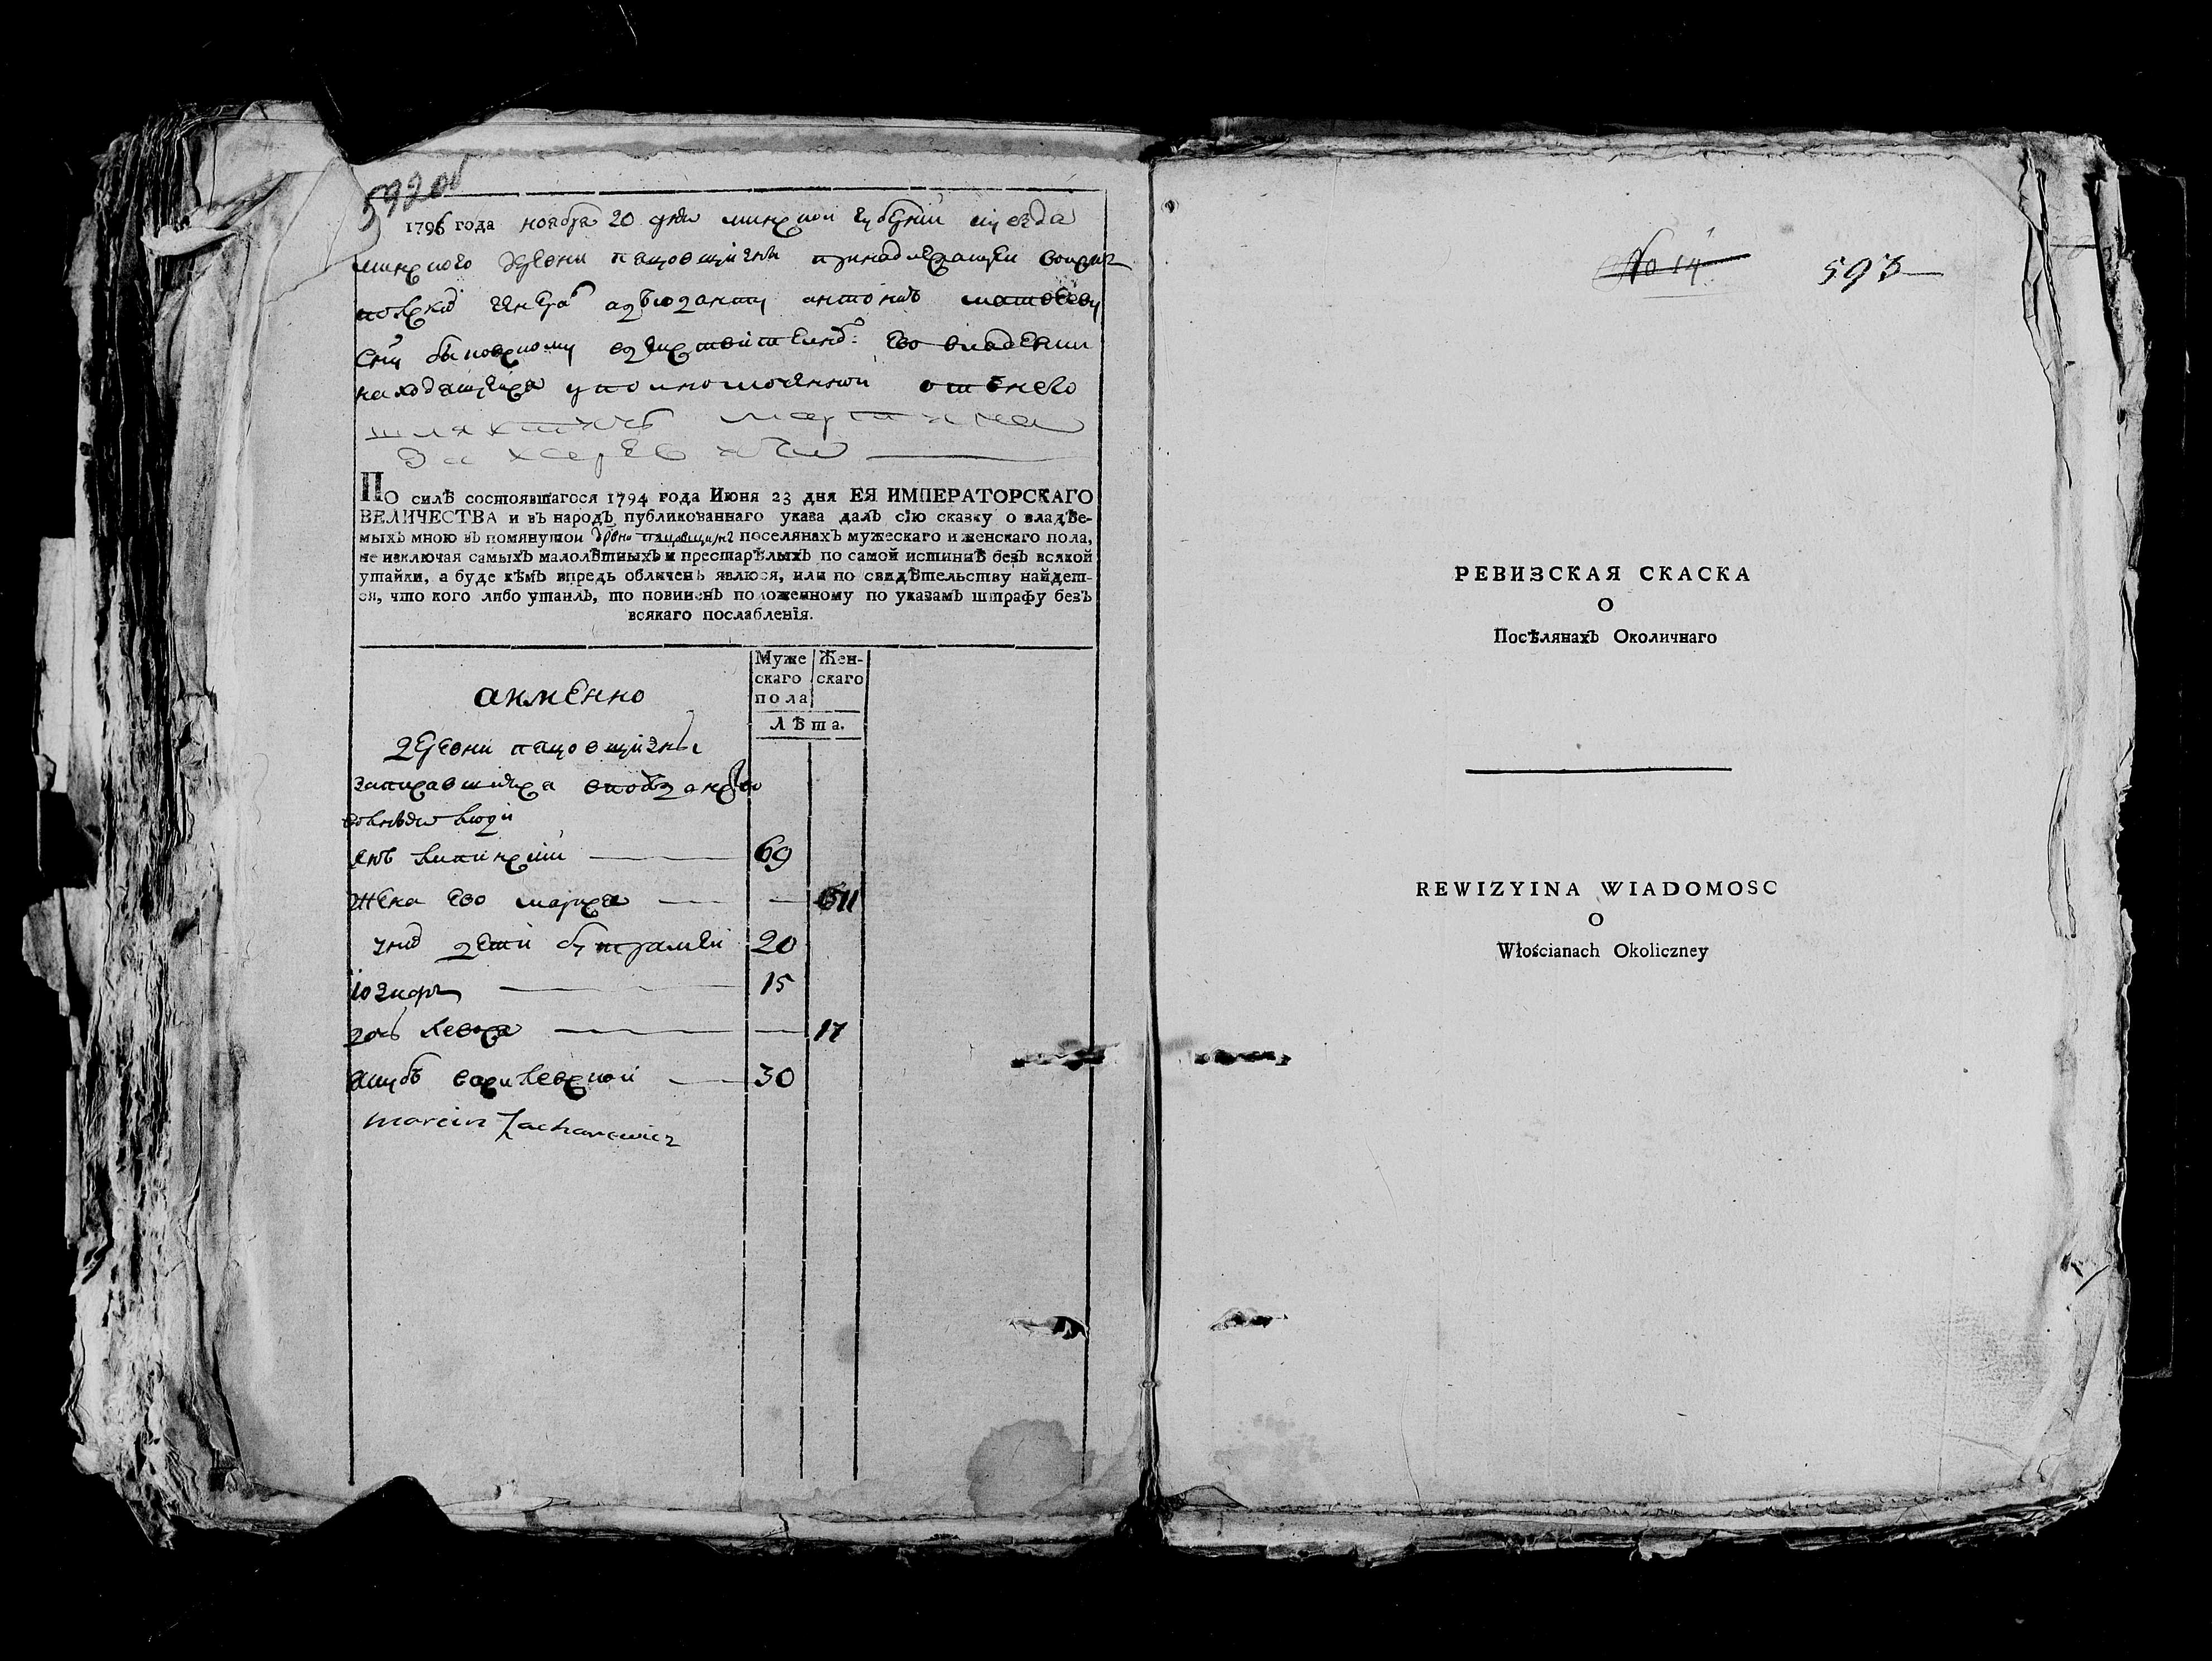 592 об
1796 года ноября 20 дня минской губернии и уезда
минского деревни пацовщизны принадлежащеи
польскихъ генера адъютанту антонию
находящеися уполномоченной отънего
шляхтичъ мартина
захаревича
ПО силѣ состоявшагося 1794 года Июня 23 дня ЕЯ ИМПЕРАТОРСКАГО
ВЕЛИЧЕСТВА и въ народъ публикованнаго указа далъ сїю сказку о владѣе-
мыхъ мною въ помянутой дрвни пацовщизне поселянахъ мужескаго и женскаго пола,
не изключая самыхъ малолѣтныхъ и престарѣлыхъ по самой истиннѣ безъ всякой
утайки, а буде кѣмъ впредь обличенъ явлюся, или по свидѣтельству найдет-
ся, что кого либо утаилъ, то повиненъ положенному по указамъ штрафу безъ
всякаго послабленїя.
Муже Жен-
скаго скаго
пола
Лѣта.
аимЕнно
деревни пацовщизны
записавшияся вподданство
волныя люди
янъ липинский 69
жена ево марися
унихъ дети бутрамеи 20
іозифъ 15
дочь 17
якубъ 30
Marcin Zacharewicz
No 14
593
РЕВИЗСКАЯ СКАСКА
О
Посѣлянахъ Околичнаго
REWIZYINA WIADOMOSC
O
Włościanach Okoliczney